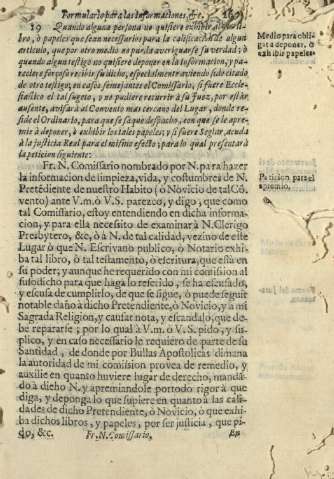 Formulario para las informaciones, &c.
19 Quando alguna persona no quisiere exhibir algun li-
bro, ò papeles que sean necessarios para la calificacion de algun
articulo, que por otro medio no pueda averiguarse su verdad; ò
quando algun testigo no quisiere deponer en la informacion, y pa-
reciere forçoso recibir su dicho, especialmente aviendo sido citado
de otro testigo; en casos semejantes el Comissario, si fuere Ecle-
siastico el tal sugeto, y no pudiere recurrir à su Juez, por estar
ausente, avisarà al Convento mas cercano del Lugar, donde re-
side el Ordinario, para que se saque despacho, con que se le apre-
mie à deponer, à exhibir los tales papeles; y si fuere Seglar, acuda
à la justicia Real para el mismo efecto; para lo qual presentarà
la peticion siguiente:
Medio para obli-
gar a deponer, ò
exhibir papeles.
Fr. N. Comissario nombrado por N. para hazer
la informacion de limpieza, vida, y costumbres de N.
Pretẽdiente de nuestro Habito (ò Novicio de tal Cõ-
vento) ante V.m. ò V.S. parezco, y digo, que como
tal Comissario, estoy entendiendo en dicha informa-
cion, y para ella necessito de examinar à N. Clerigo
Presbytero, &c, ò à N. de tal calidad, vezino de este
Lugar ò que N. Escrivano publico, ò Notario exhi-
ba tal libro, ò tal testamento, ò escritura, que està en
su poder; y aunque he requerido con mi comision al
susodicho para que haga lo referido, se ha escusado,
y escusa de cumplirlo, de que se sigue, ò puede seguir
notable daño à dicho Pretendiente, ò Novicio, y à mi
Sagrada Religion, y causar nota, y escandalo, que de-
be repararse; por lo qual à V.m. ò V.S. pido, y su-
plico, y en caso necessario le requiero de parte de su
Santidad, de donde por Bullas Apostolicas dimana
la autoridad de mi comision provea de remedio, y
auxilie en quanto huviere lugar de derecho, mandã-
do à dicho N. y apremiandole por todo rigor à que
diga, y deponga lo que supiere en quanto à las cali-
dades de dicho Pretendiente, ò Novicio, ò que exhi-
ba dichos libros, y papeles, por ser justicia, que pi-
do, &c. Fr. N. Comissario,
Peticion para el
apremio.
En